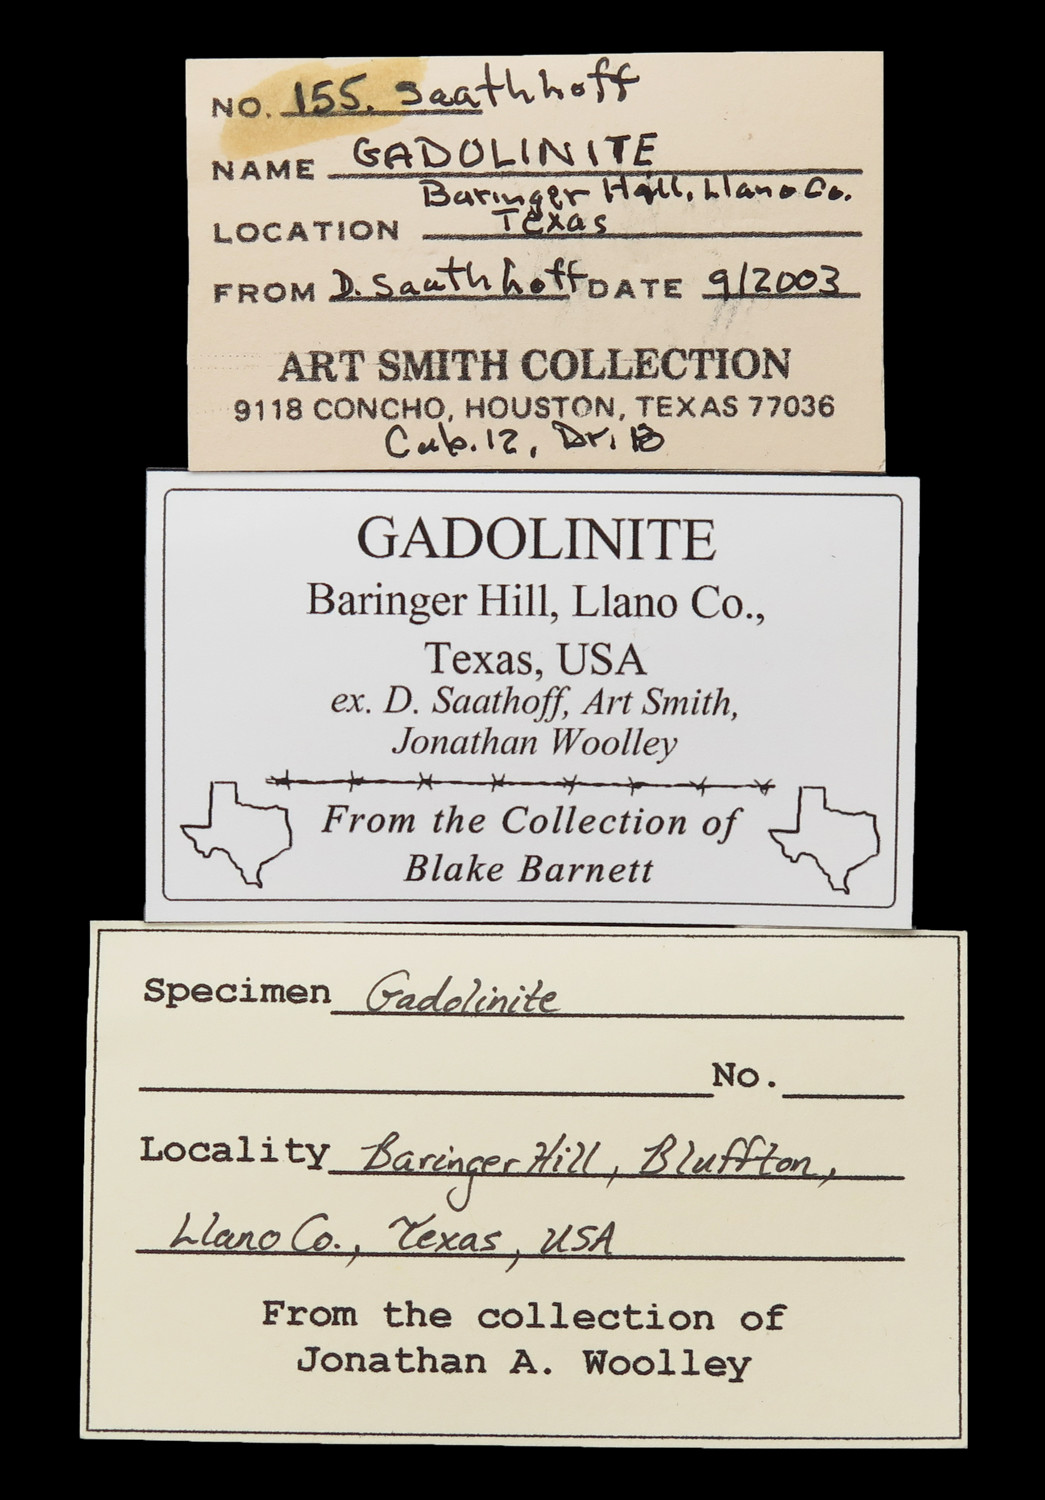 NO. 155. Saathhoff
NAME GADOLINITE
Baringer Hill, Llano Co.
LOCATION Texas
FROM D. Saathhoff DATE 9/2003
ART SMITH COLLECTION
9118 CONCHO, HOUSTON, TEXAS 77036
Cab. 12, Dr. 13
GADOLINITE
Baringer Hill, Llano Co.,
Texas, USA
ex. D. Saathoff, Art Smith,
Jonathan Woolley
From the Collection of
Blake Barnett
Specimen Gadolinite
No.
Locality Baringer Hill, Bluffton,
Llano Co., Texas, USA
From the collection of
Jonathan A. Woolley